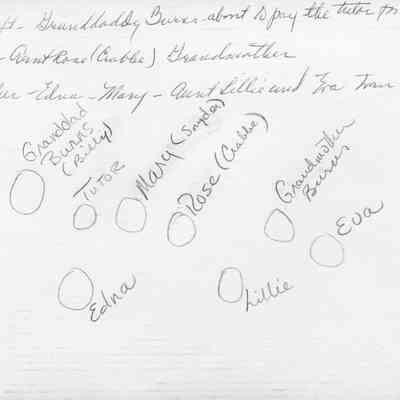 ft - Granddaddy Burns about to pay the tutor for
- Aunt Rose (Crabbe) Grandmother
- Edna - Mary - Aunt Lillie and Eva
Granddad
Burns
(Billy)
Tutor
Mary (Snyder)
Rose (Crabbe)
Grandmother
Burns
Eva
Edna
Lillie